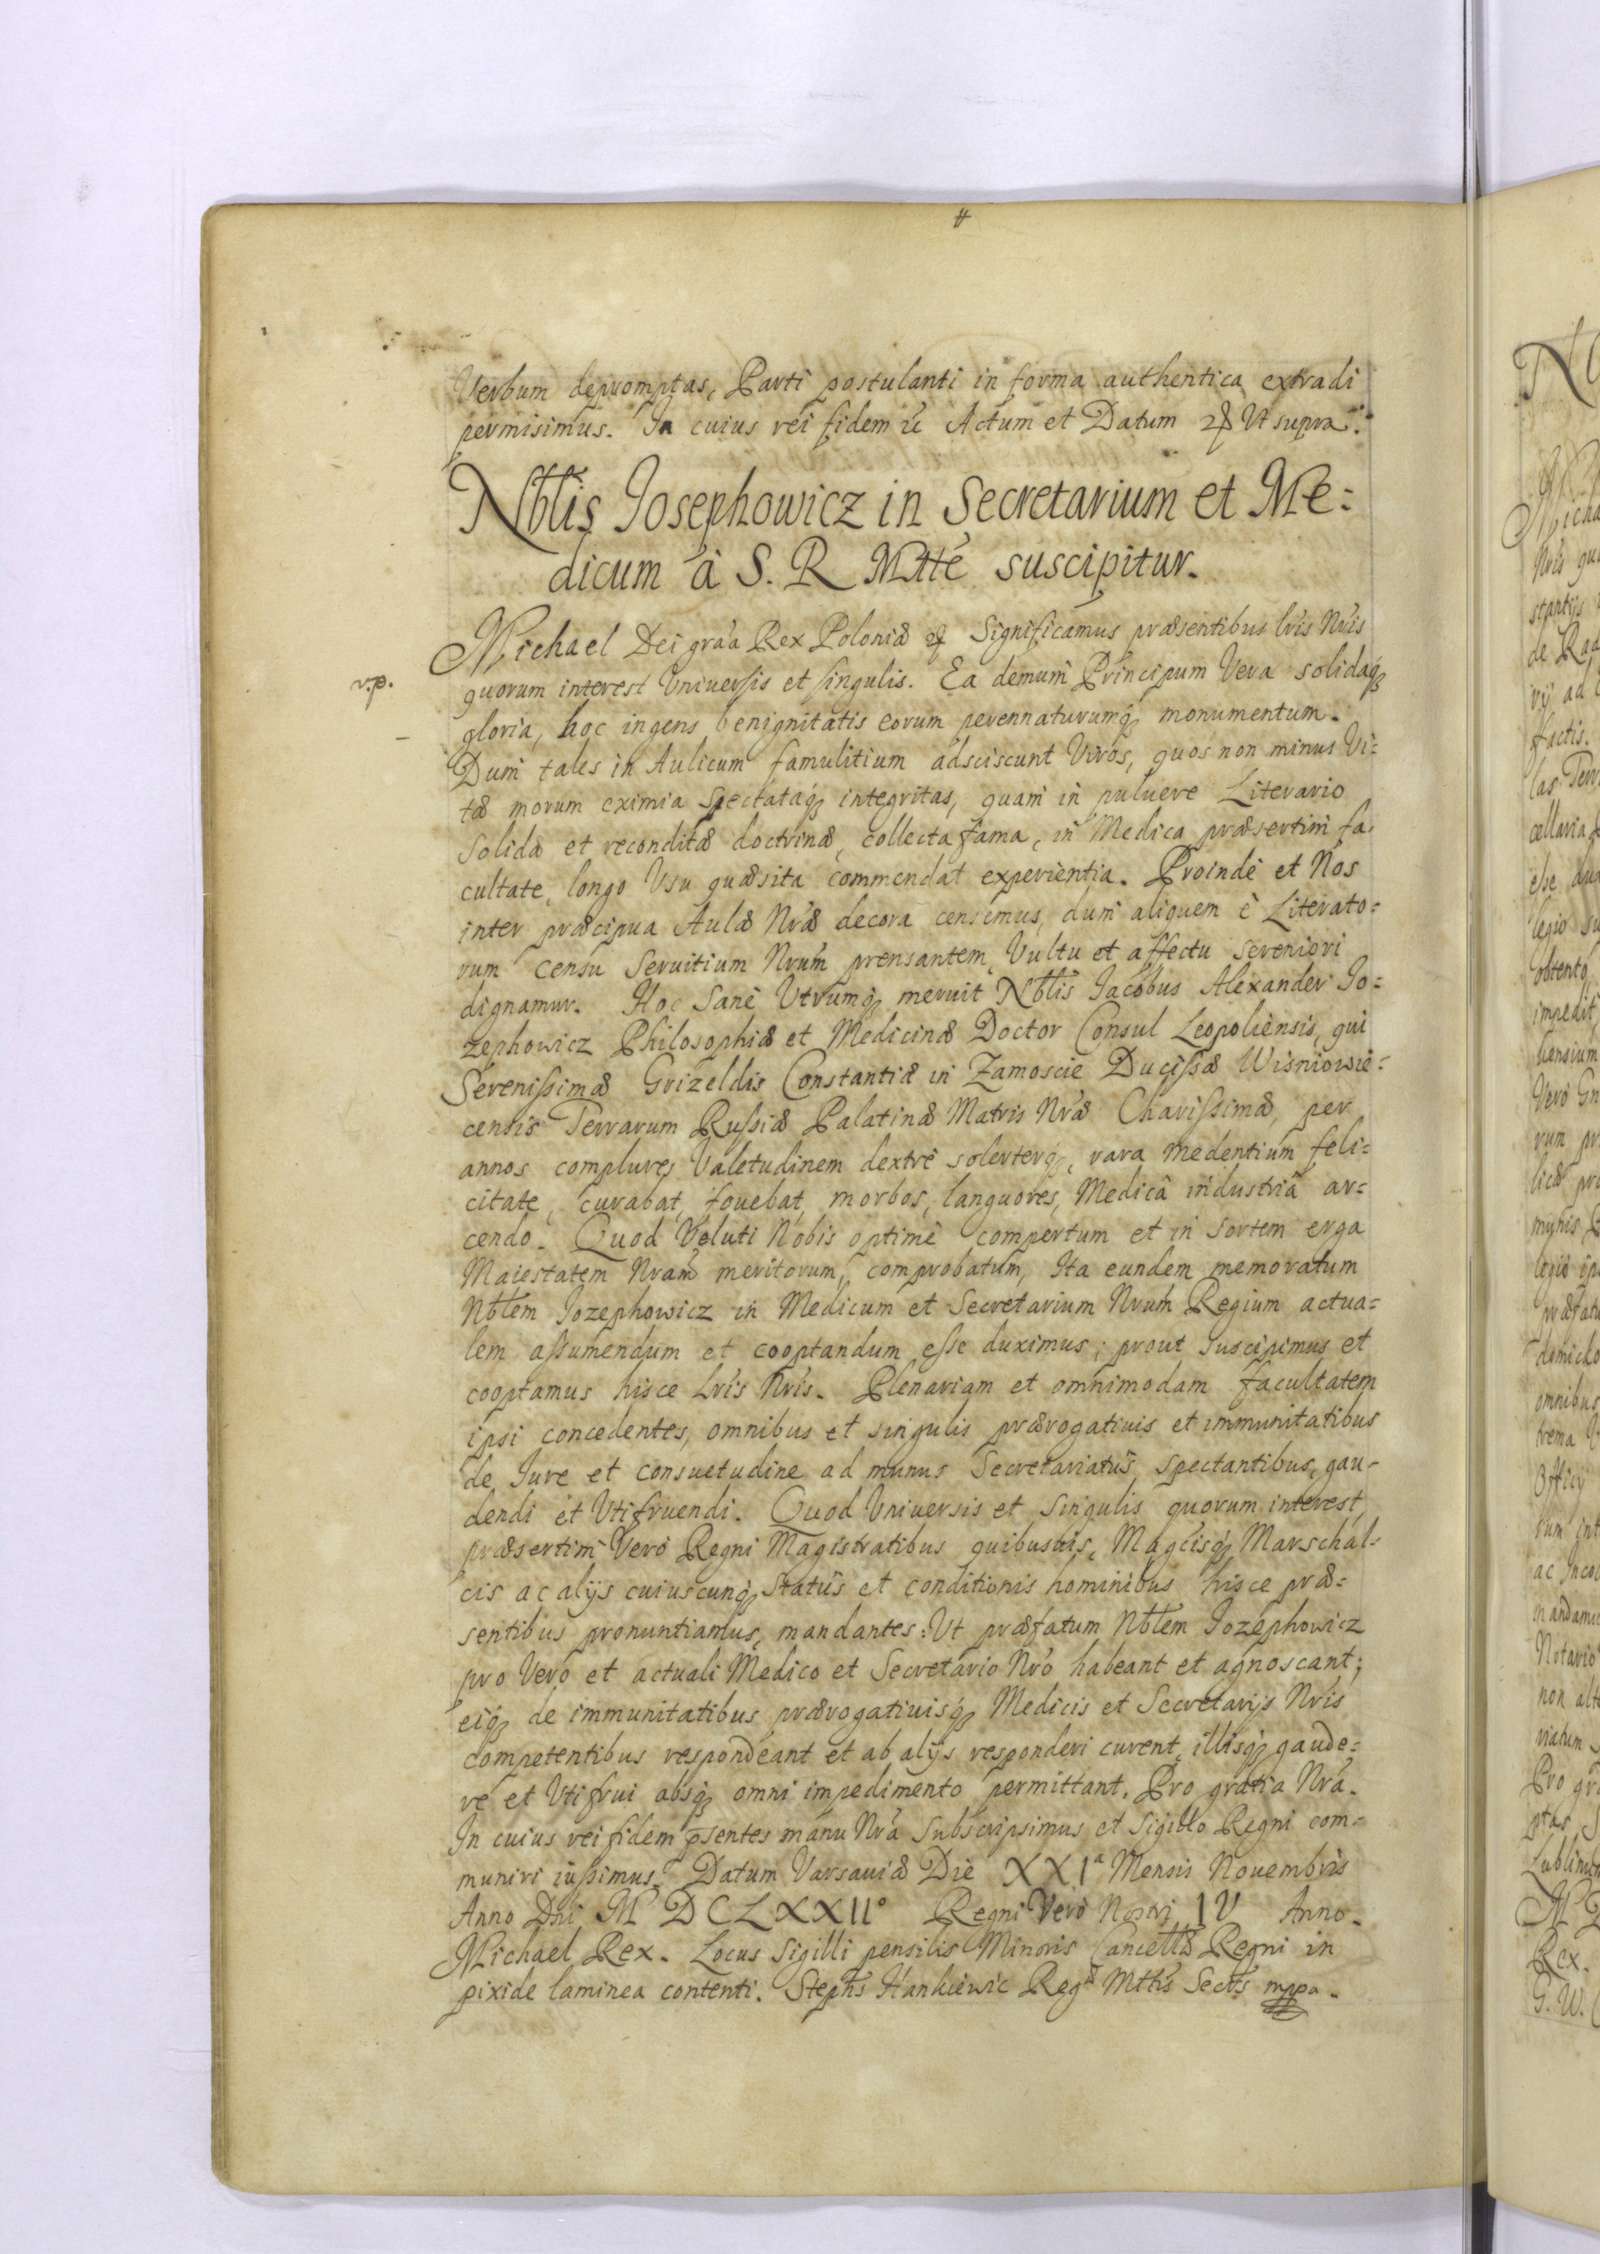 Verbum depromptas, Parti postulanti in forma authentica extradi
permisimus. In cuius rei fidem &c Actum et Datum Ut supra.
Nbtlis Josephowicz in Secretarium et Me=
dicum à S. R Mtte suscipitur.
Michael Dei gra'a Rex Poloniæ &c Significamus præsentibus lris Nris
v.p.
quorum interest Universis et singulis. Ea demum Principum Vera solidaq;
gloria, hoc ingens benignitatis eorum perennaturumq; monumentum.
Dum tales in Aulicum famulitium adsciscunt Viros, quos non minus Vi=
tæ morum eximia spectataq; integritas, quam in puluere Literario
solidæ et reconditæ doctrinæ, collecta fama, in Medica præsertim fa,
cultate, longo Usu quæsita commendat experientia. Proindè et Nos
inter præcipua Aulæ Nræ decora censemus, dum aliquem è Literato=
rum censu Seruitium Nrum prensantem, Vultu et affectu sereniori
dignamur. Hoc sanè Utrumq; meruit Nbtlis Jacobus Alexander Jo=
zephowicz Philosophiæ et Medicinæ Doctor Consul Leopoliensis, qui
Serenissimæ Grizeldis Constantiæ in Zamoscie Ducissæ Wisniowie=
censis Terrarum Russiæ Palatinæ Matris Nræ Charissimæ, per
annos complures Valetudinem dextrè solerterq;, rara medentium feli=
citate, curabat, fouebat, morbos, languores, Medicâ industriâ ar=
cendo. Quod Veluti Nobis optimè compertum et in sortem erga
Maiestatem Nram meritorum, comprobatum, Ita eundem memoratum
Nbtlem Jozephowicz in Medicum et Secretarium Nrum Regium actua=
lem assumendum et cooptandum esse duximus; prout suscipimus et
cooptamus hisce Lris Nris. Plenariam et omnimodam facultatem
ipsi concedentes, omnibus et singulis prærogatiuis et immunitatibus
de Jure et consuetudine ad munus Secretariatûs spectantibus, gau-
dendi et Utifruendi. Quod Universis et singulis quorum interest,
præsertim Verò Regni Magistratibus quibusuis, Magcisq; Marschal-
cis ac alijs cuiuscunq; statûs et conditionis hominibus hisce præ=
sentibus pronuntiamus, mandantes: Ut præfatum Nbtlem Jozephowicz
pro Vero et actuali Medico et Secretario Nro habeant et agnoscant;
eiq; de immunitatibus prærogatiuisq; Medicis et Secretarijs Nris
competentibus respondeant et ab alijs responderi curent, illisq; gaude=
re et Utifrui absq; omni impedimento permittant. Pro gratia Nra.
In cuius rei fidem pñsentes manu Nra Subscripsimus et Sigillo Regni com=
muniri iussimus. Datum Varsaviæ Die XXIa Mensis Nouembris
Anno Dni M DCLXXIIo Regni Vero Nostri IV Anno.
Michael Rex. Locus Sigilli pensilis Minoris Cancellæ Regni in
pixide laminea contenti. Stephs Hankiewic Regæ Mttis Secrs mppa.